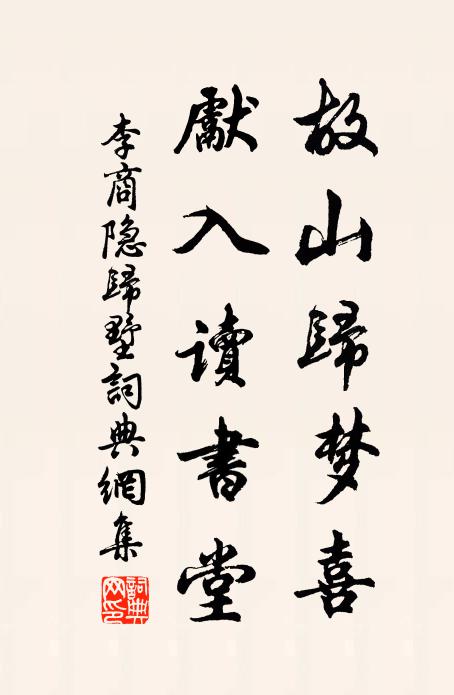 故山歸梦喜
獻入讀書堂
李商隐歸墅詞典網集
詞典网印